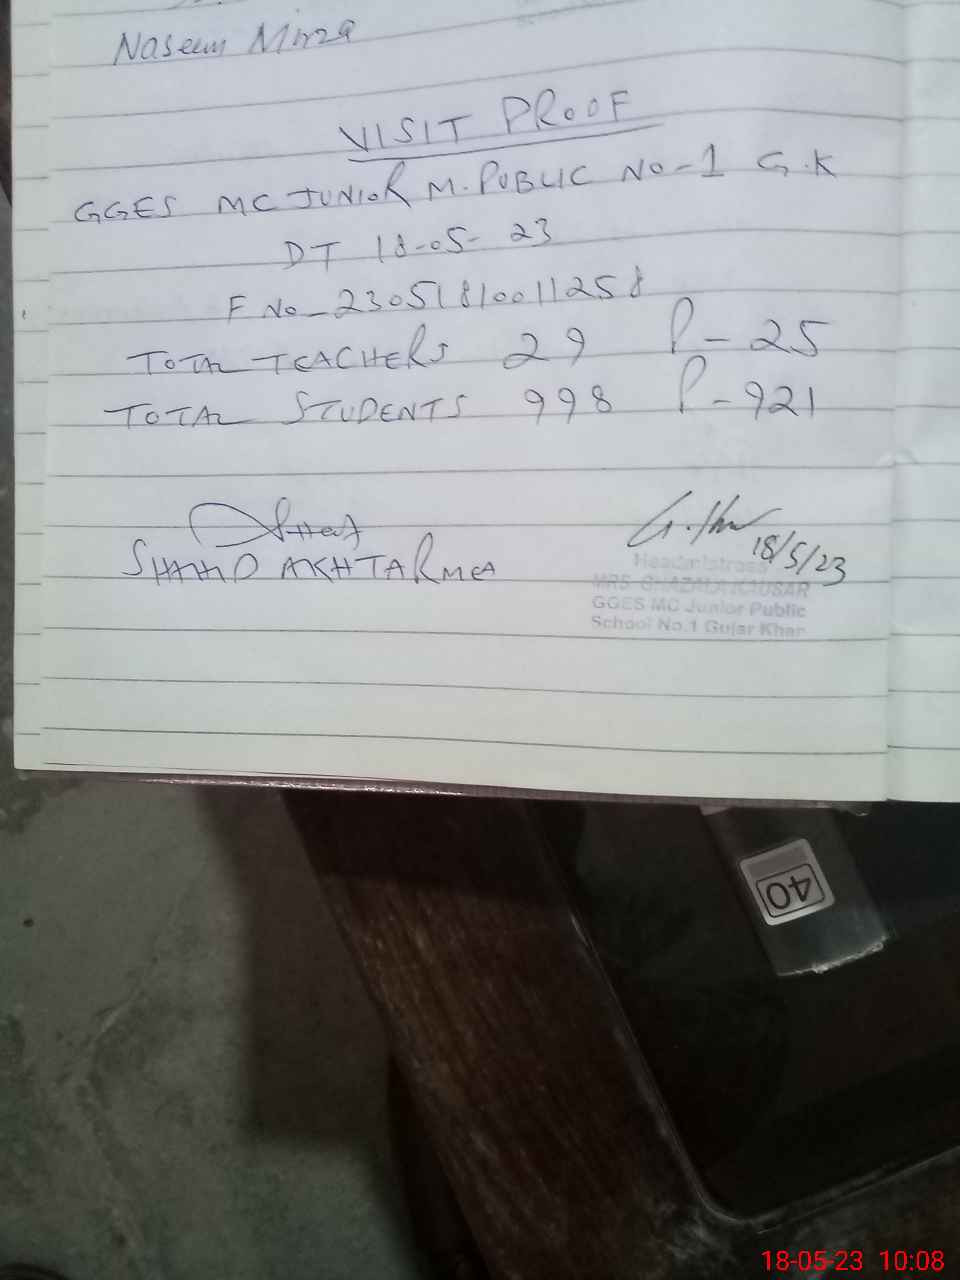 Naseem Mirza
VISIT PROOF
GGES MC JUNIOR M. PUBLIC NO-1 G.K
DT 18-05-23
F No_23051810011258
TOTAL TEACHERS 29 P-25
TOTAL STUDENTS 998 P-921
AKHTAR MEA
18/5/23
Headmistress
MRS GHAZALA KAUSAR
GGES MC Junior Public
School No.1 Gujar Khan
40
18-05-23 10:08